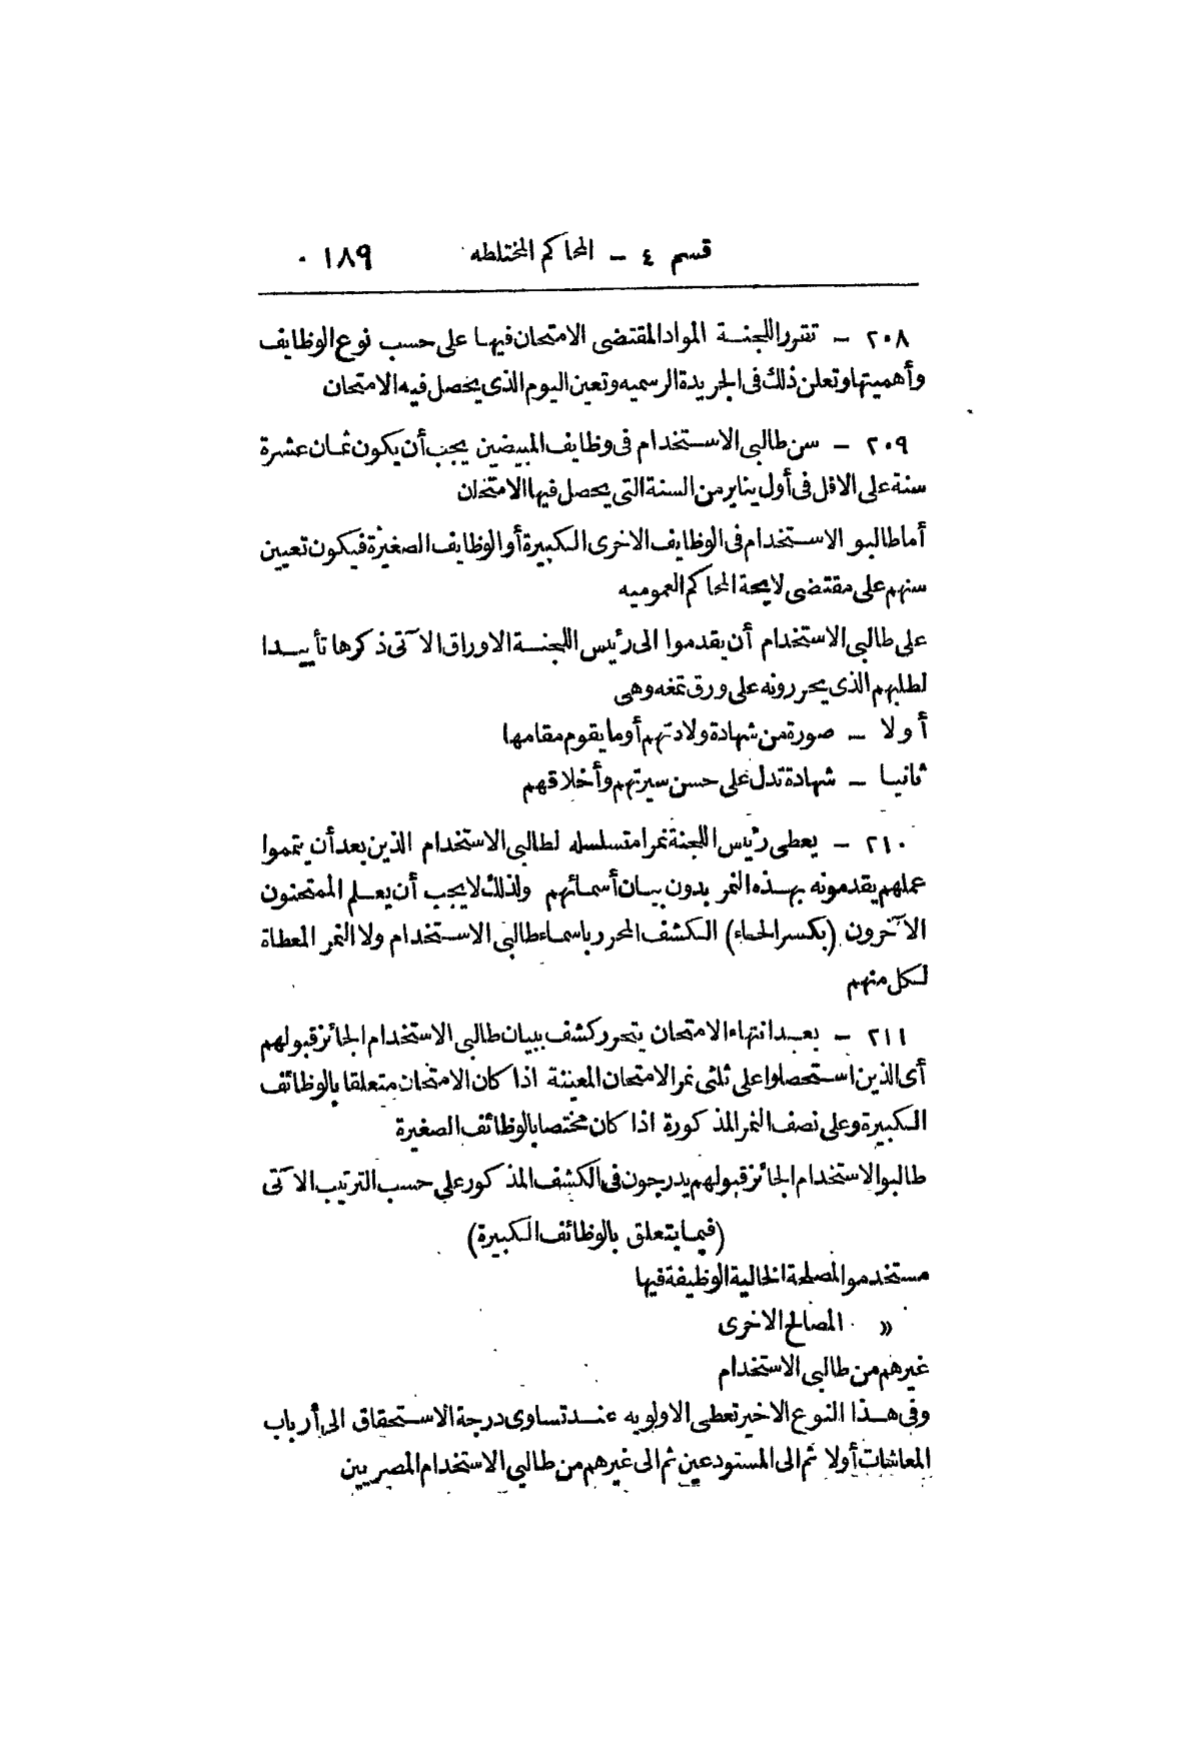 قسم ٤ – المحاكم المختلطه ١٨٩
٢٠٨ – تقرر اللجنة المواد المقتضى الامتحان فيها على حسب نوع الوظايف
وأهميتها وتعلن ذلك فى الجريدة الرسميه وتعين اليوم الذى يحصل فيه الامتحان
٢٠٩ – سن طالبى الاستخدام فى وظايف المبيضين يجب أن يكون ثمان عشرة
سنة على الاقل فى أول يناير من السنة التى يحصل فيها الامتحان
أما طالبو الاستخدام فى الوظايف الاخرى الكبيرة أو الوظايف الصغيرة فيكون تعيين
سنهم على مقتضى لايحة المحاكم العموميه
على طالبى الاستخدام أن يقدموا الى رئيس اللجنة الاوراق الآتى ذكرها تأييدا
لطلبهم الذى يحررونه على ورق تمغه وهى
أولا – صورة من شهادة ولادتهم أو ما يقوم مقامها
ثانيا – شهادة تدل على حسن سيرتهم وأخلاقهم
٢١٠ – يعطى رئيس اللجنة نمرا متسلسله لطالبى الاستخدام الذين بعد أن يتمموا
عملهم يقدمونه بهذه النمر بدون بيان أسمائهم ولذلك لا يجب أن يعلم الممتحنون
الآخرون (بكسر الحاء) الكشف المحرر باسماء طالبى الاستخدام ولا النمر المعطاة
لكل منهم
٢١١ – بعد انتهاء الامتحان يتحرر كشف ببيان طالبى الاستخدام الجائز قبولهم
أى الذين استحصلوا على ثلثى نمر الامتحان المعينة اذا كان الامتحان متعلقا بالوظائف
الكبيرة وعلى نصف النمر المذكورة اذا كان مختصا بالوظائف الصغيرة
طالبوا الاستخدام الجائز قبولهم يدرجون فى الكشف المذكور على حسب الترتيب الآتى
(فيما يتعلق بالوظائف الكبيرة)
مستخدمو المصلحة الخالية الوظيفة فيها
» المصالح الاخرى
غيرهم من طالبى الاستخدام
وفى هذا النوع الاخير تعطى الاولويه عند تساوى درجة الاستحقاق الى أرباب
المعاشات أولا ثم الى المستودعين ثم الى غيرهم من طالبي الاستخدام المصريين